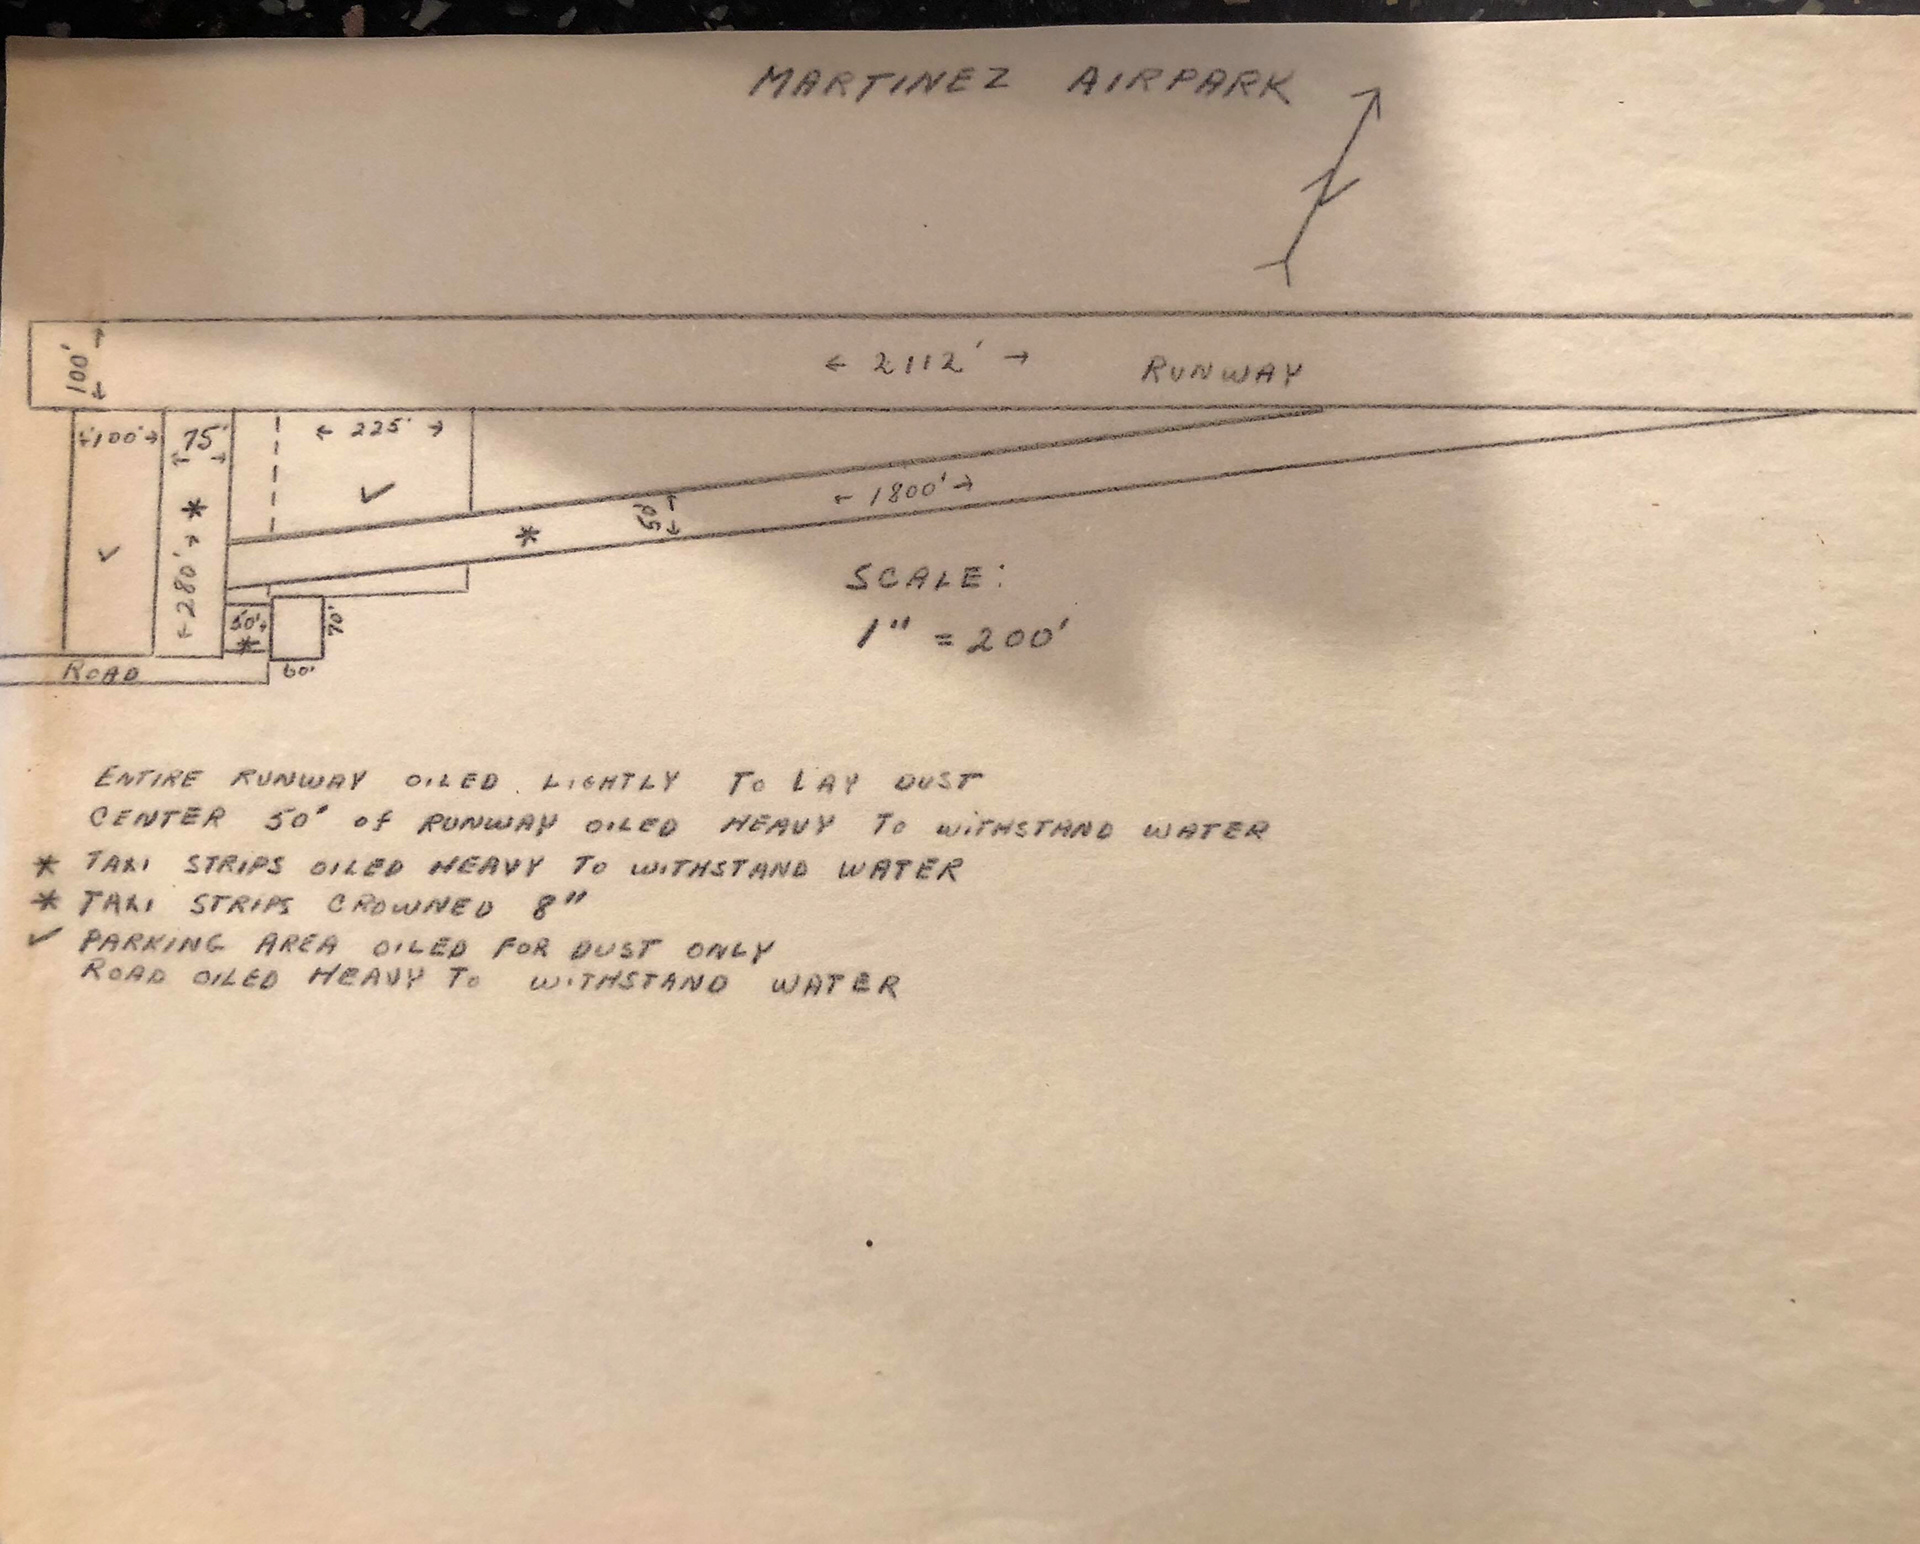 MARTINEZ AIRPARK
N
100'
← 2112' →
RUNWAY
100'
75'
← 225' →
✓
*
✓
← 280' →
*
50'
← 1800' →
50'
*
70'
60'
ROAD
SCALE:
1" = 200'
ENTIRE RUNWAY OILED LIGHTLY TO LAY DUST
CENTER 50' of RUNWAY OILED HEAVY TO WITHSTAND WATER
* TAXI STRIPS OILED HEAVY TO WITHSTAND WATER
* TAXI STRIPS CROWNED 8"
✓ PARKING AREA OILED FOR DUST ONLY
ROAD OILED HEAVY TO WITHSTAND WATER